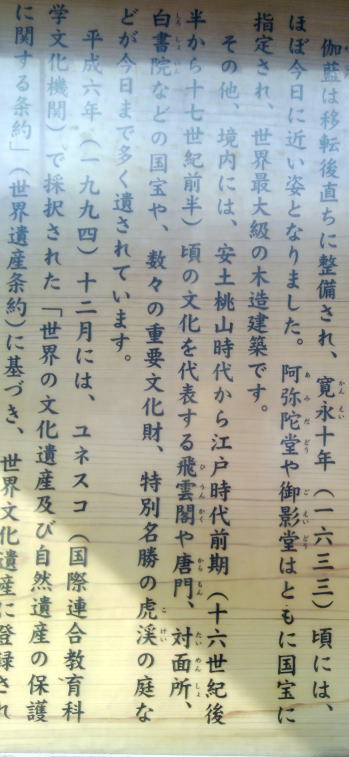 伽藍は移転後直ちに整備され、寛永十年（一六三三）頃には、
ほぼ今日に近い姿となりました。阿弥陀堂や御影堂はともに国宝に
指定され、世界最大級の木造建築です。
その他、境内には、安土桃山時代から江戸時代前期（十六世紀後
半から十七世紀前半）頃の文化を代表する飛雲閣や唐門、対面所、
白書院などの国宝や、数々の重要文化財、特別名勝の虎渓の庭な
どが今日まで多く遺されています。
平成六年（一九九四）十二月には、ユネスコ（国際連合教育科
学文化機関）で採択された「世界の文化遺産及び自然遺産の保護
に関する条約」（世界遺産条約）に基づき、世界文化遺産に登録され